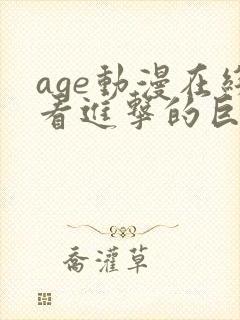 age動漫在
看進撃的巨
喬灌草